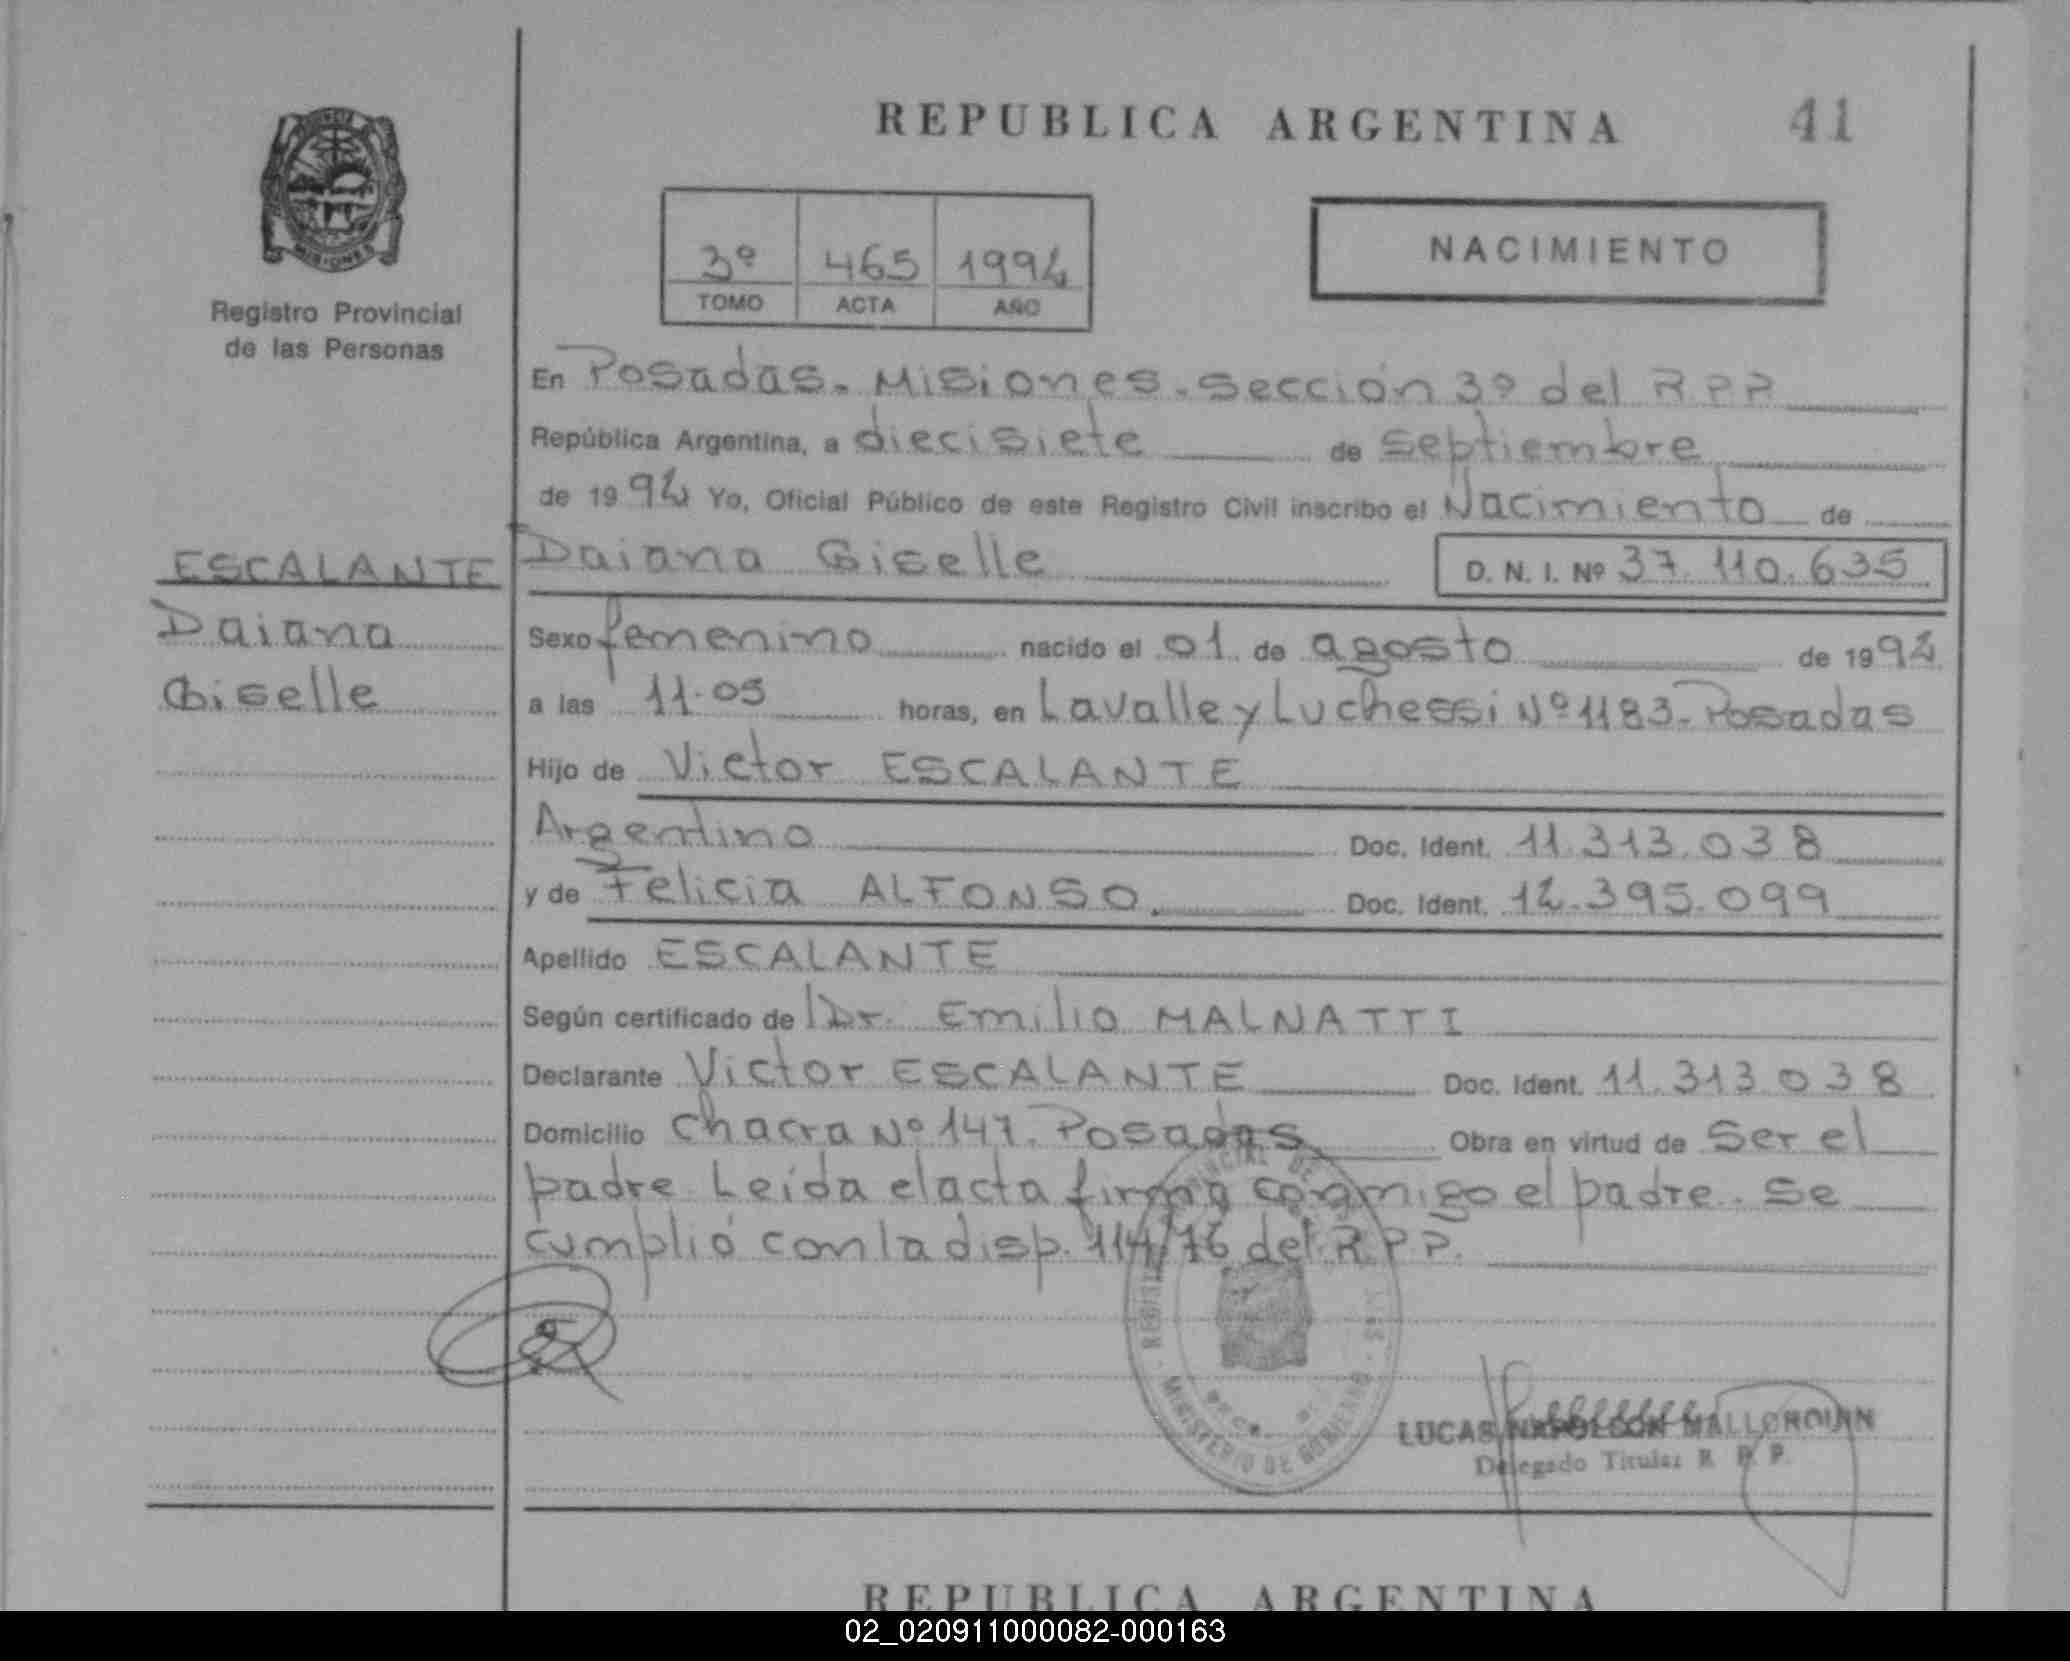 REPUBLICA ARGENTINA 41
3º 465 1992
TOMO ACTA AÑO
NACIMIENTO
Registro Provincial
de las Personas
En Posadas. Misiones. Sección 3º del R P P
República Argentina, a diecisiete de septiembre
de 1992 Yo, Oficial Público de este Registro Civil inscribo el Nacimiento de
Daiana Giselle D. N. I. Nº 37.110.635
ESCALANTE
Daiana
Giselle
Sexo femenino nacido el 01 de agosto de 1992
a las 11.05 horas, en Lavalle y Luchessi Nº 1183. Posadas
Hijo de Victor ESCALANTE
Argentino Doc. Ident. 11.313.038
y de Felicia ALFONSO. Doc. Ident. 12.395.099
Apellido ESCALANTE
Según certificado de Dr. Emilio MALNATTI
Declarante Victor ESCALANTE Doc. Ident. 11.313.038
Domicilio Chacra Nº 147. Posadas Obra en virtud de Ser el
padre. Leída el acta firma conmigo el padre. Se
cumplió con la disp. 114/76 del R P P.
MINISTERIO DE GOBIERNO
LUCAS NAPOLEON MALLORQUIN
Delegado Titular R. P. P.
REPUBLICA ARGENTINA
02_020911000082-000163